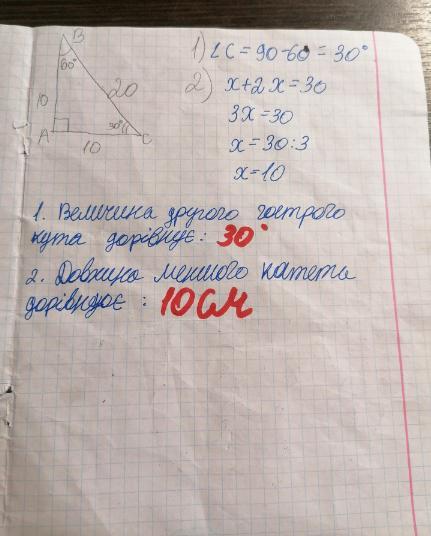 B
60°
20
10
A
30°
C
10
1) ∠C = 90-60 = 30°
2) x+2x=30
3x=30
x=30:3
x=10
1. Величина другого гострого
кута дорівнує: 30°
2. Довжина меншого катета
дорівнює : 10см